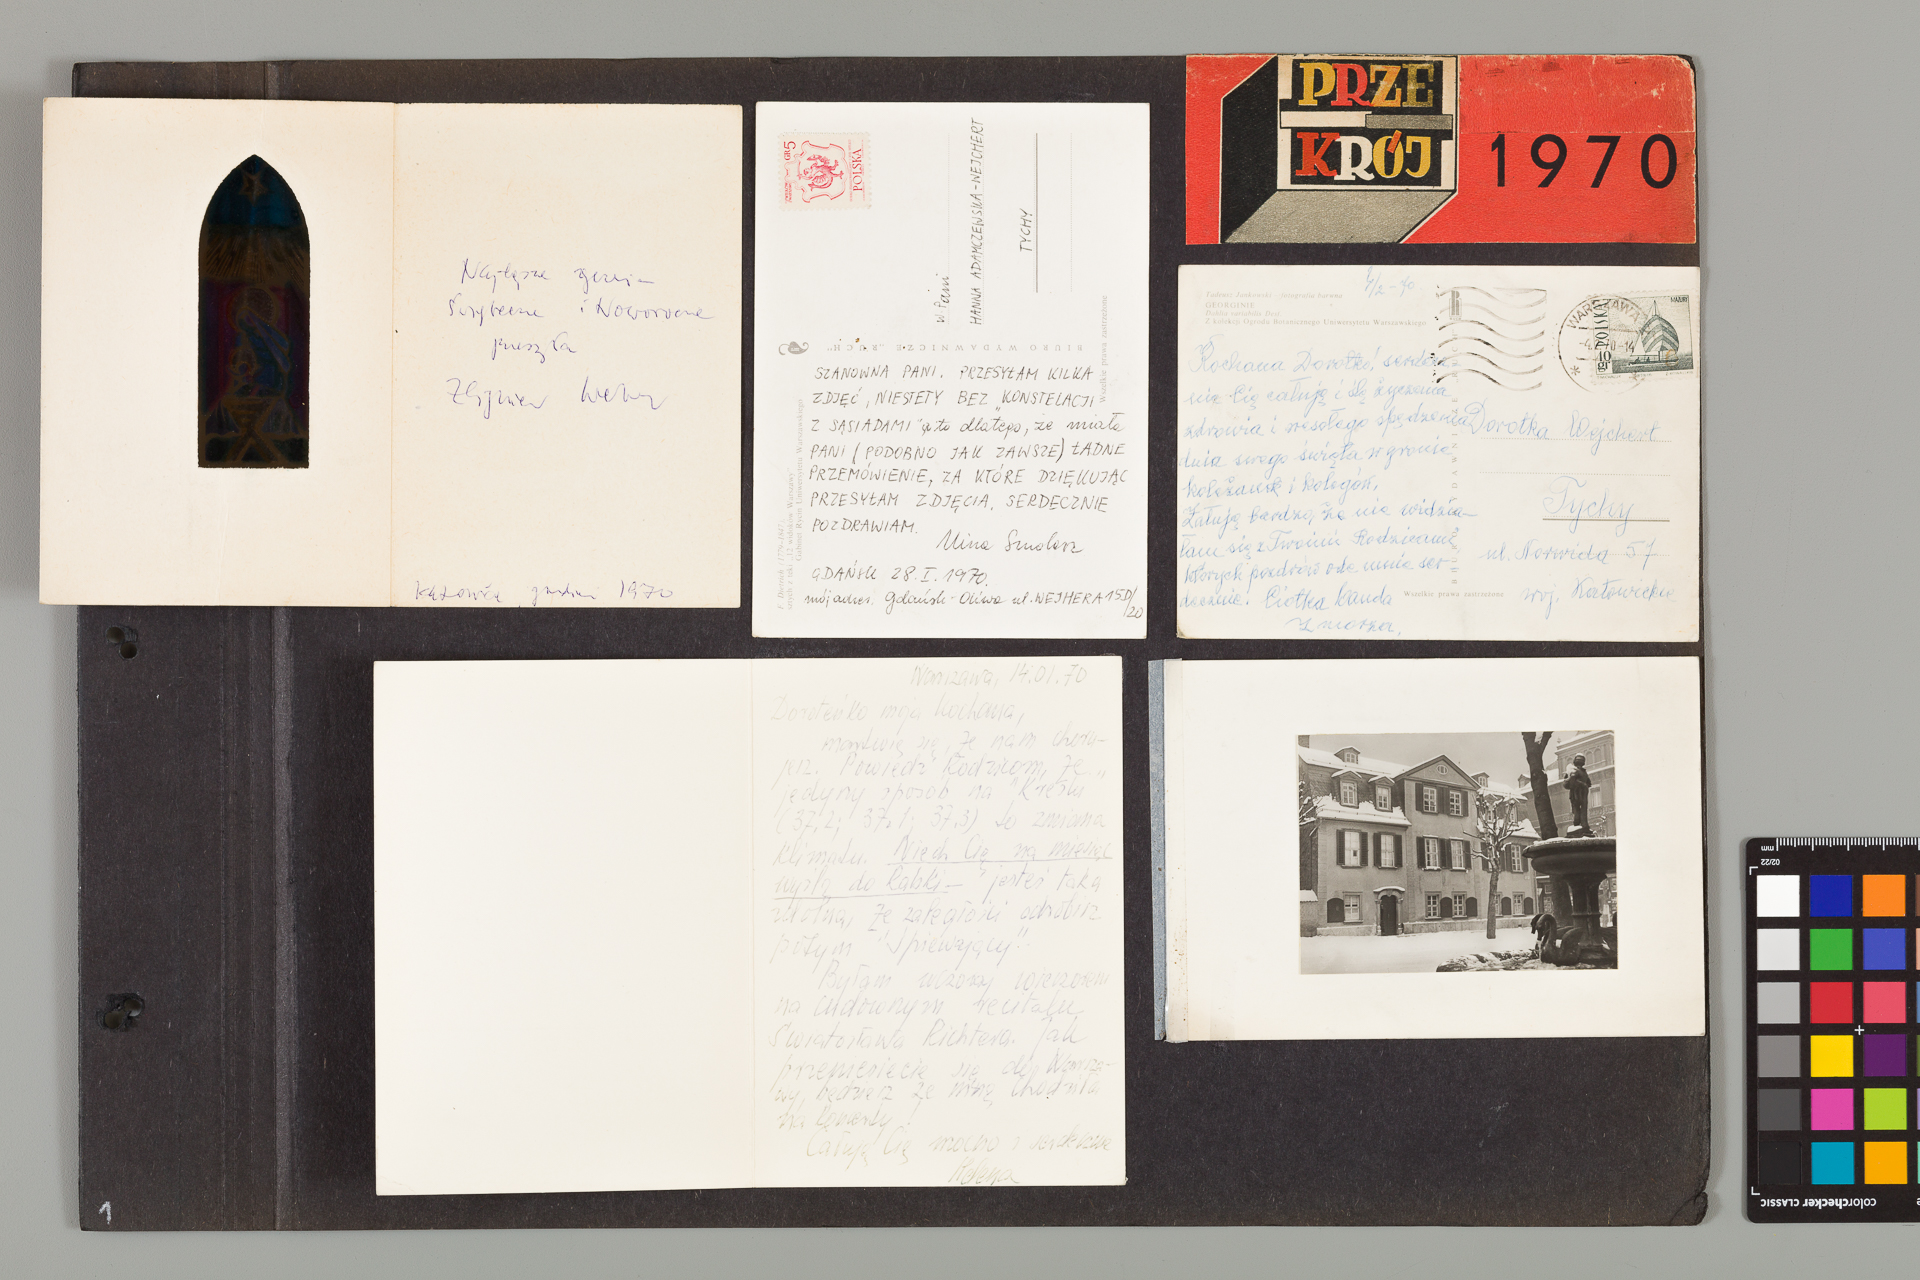 Najlepsze życzenia
Świąteczne i Noworoczne
przesyła
Zbigniew
Katowice, grudzień 1970
5 GR
POLSKA
W. Pani
HANNA ADAMCZEWSKA-WEJCHERT
TYCHY
BIURO WYDAWNICZE „RUCH”
Wszelkie prawa zastrzeżone
12 widoków Warszawy
Gabinet Rycin Uniwersytetu Warszawskiego
SZANOWNA PANI. PRZESYŁAM KILKA
ZDJĘĆ, NIESTETY BEZ "KONSTELACJI
Z SĄSIADAMI" a to dlatego, że miała
PANI (PODOBNO JAK ZAWSZE) ŁADNE
PRZEMÓWIENIE, ZA KTÓRE DZIĘKUJĄC
PRZESYŁAM ZDJĘCIA. SERDECZNIE
POZDRAWIAM.
Nina Smolarz
GDAŃSK 28.I.1970.
mój adres. Gdańsk-Oliwa ul. WEJHERA 15D/20
PRZE
KRÓJ
1970
4/2-70
Tadeusz Jankowski - fotografia barwna
GEORGINIE
Dahlia variabilis Desf.
Z kolekcji Ogrodu Botanicznego Uniwersytetu Warszawskiego
R
WARSZAWA
POLSKA
10 gr
MAZURY
Kochana Dorotko, serdecz-
nie Cię całuję i ślę życzenia
zdrowia i wesołego spędzenia
dnia swego święta w gronie
koleżanek i kolegów.
Żałuję bardzo, że nie widzia-
łam się z Twoimi Rodzicami
których pozdrów ode mnie ser-
decznie. Ciotka Wanda
z morza.
Dorotka Wejchert
Tychy
ul. Norwida 57
woj. Katowickie
Wszelkie prawa zastrzeżone
Warszawa, 14.01.70
Doroteńko moja kochana,
martwię się, że nam choru-
jesz. Powiedz Rodzicom, że
jedyny sposób na "kreski"
(37,2; 37,1; 37,3) to zmiana
klimatu. Niech Cię na miesiąc
wyślą do Rabki – jesteś taka
zdolna, że zaległości odrobisz
potym "śpiewający".
Byłam wczoraj wieczorem
na cudownym recitalu
Światosława Richtera. Jak
przeniesiecie się do Warsza-
wy, będziesz ze mną chodziła
na koncerty.
Całuję Cię mocno i serdecznie
Helena
1
mm
02/22
colorchecker CLASSIC